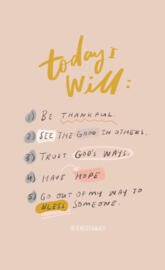 today I
will:
1) BE THANKFUL.
2) SEE THE GOOD IN OTHERS.
3) TRUST GOD'S WAYS.
4) HAVE HOPE
5) GO OUT OF MY WAY TO
BLESS SOMEONE.